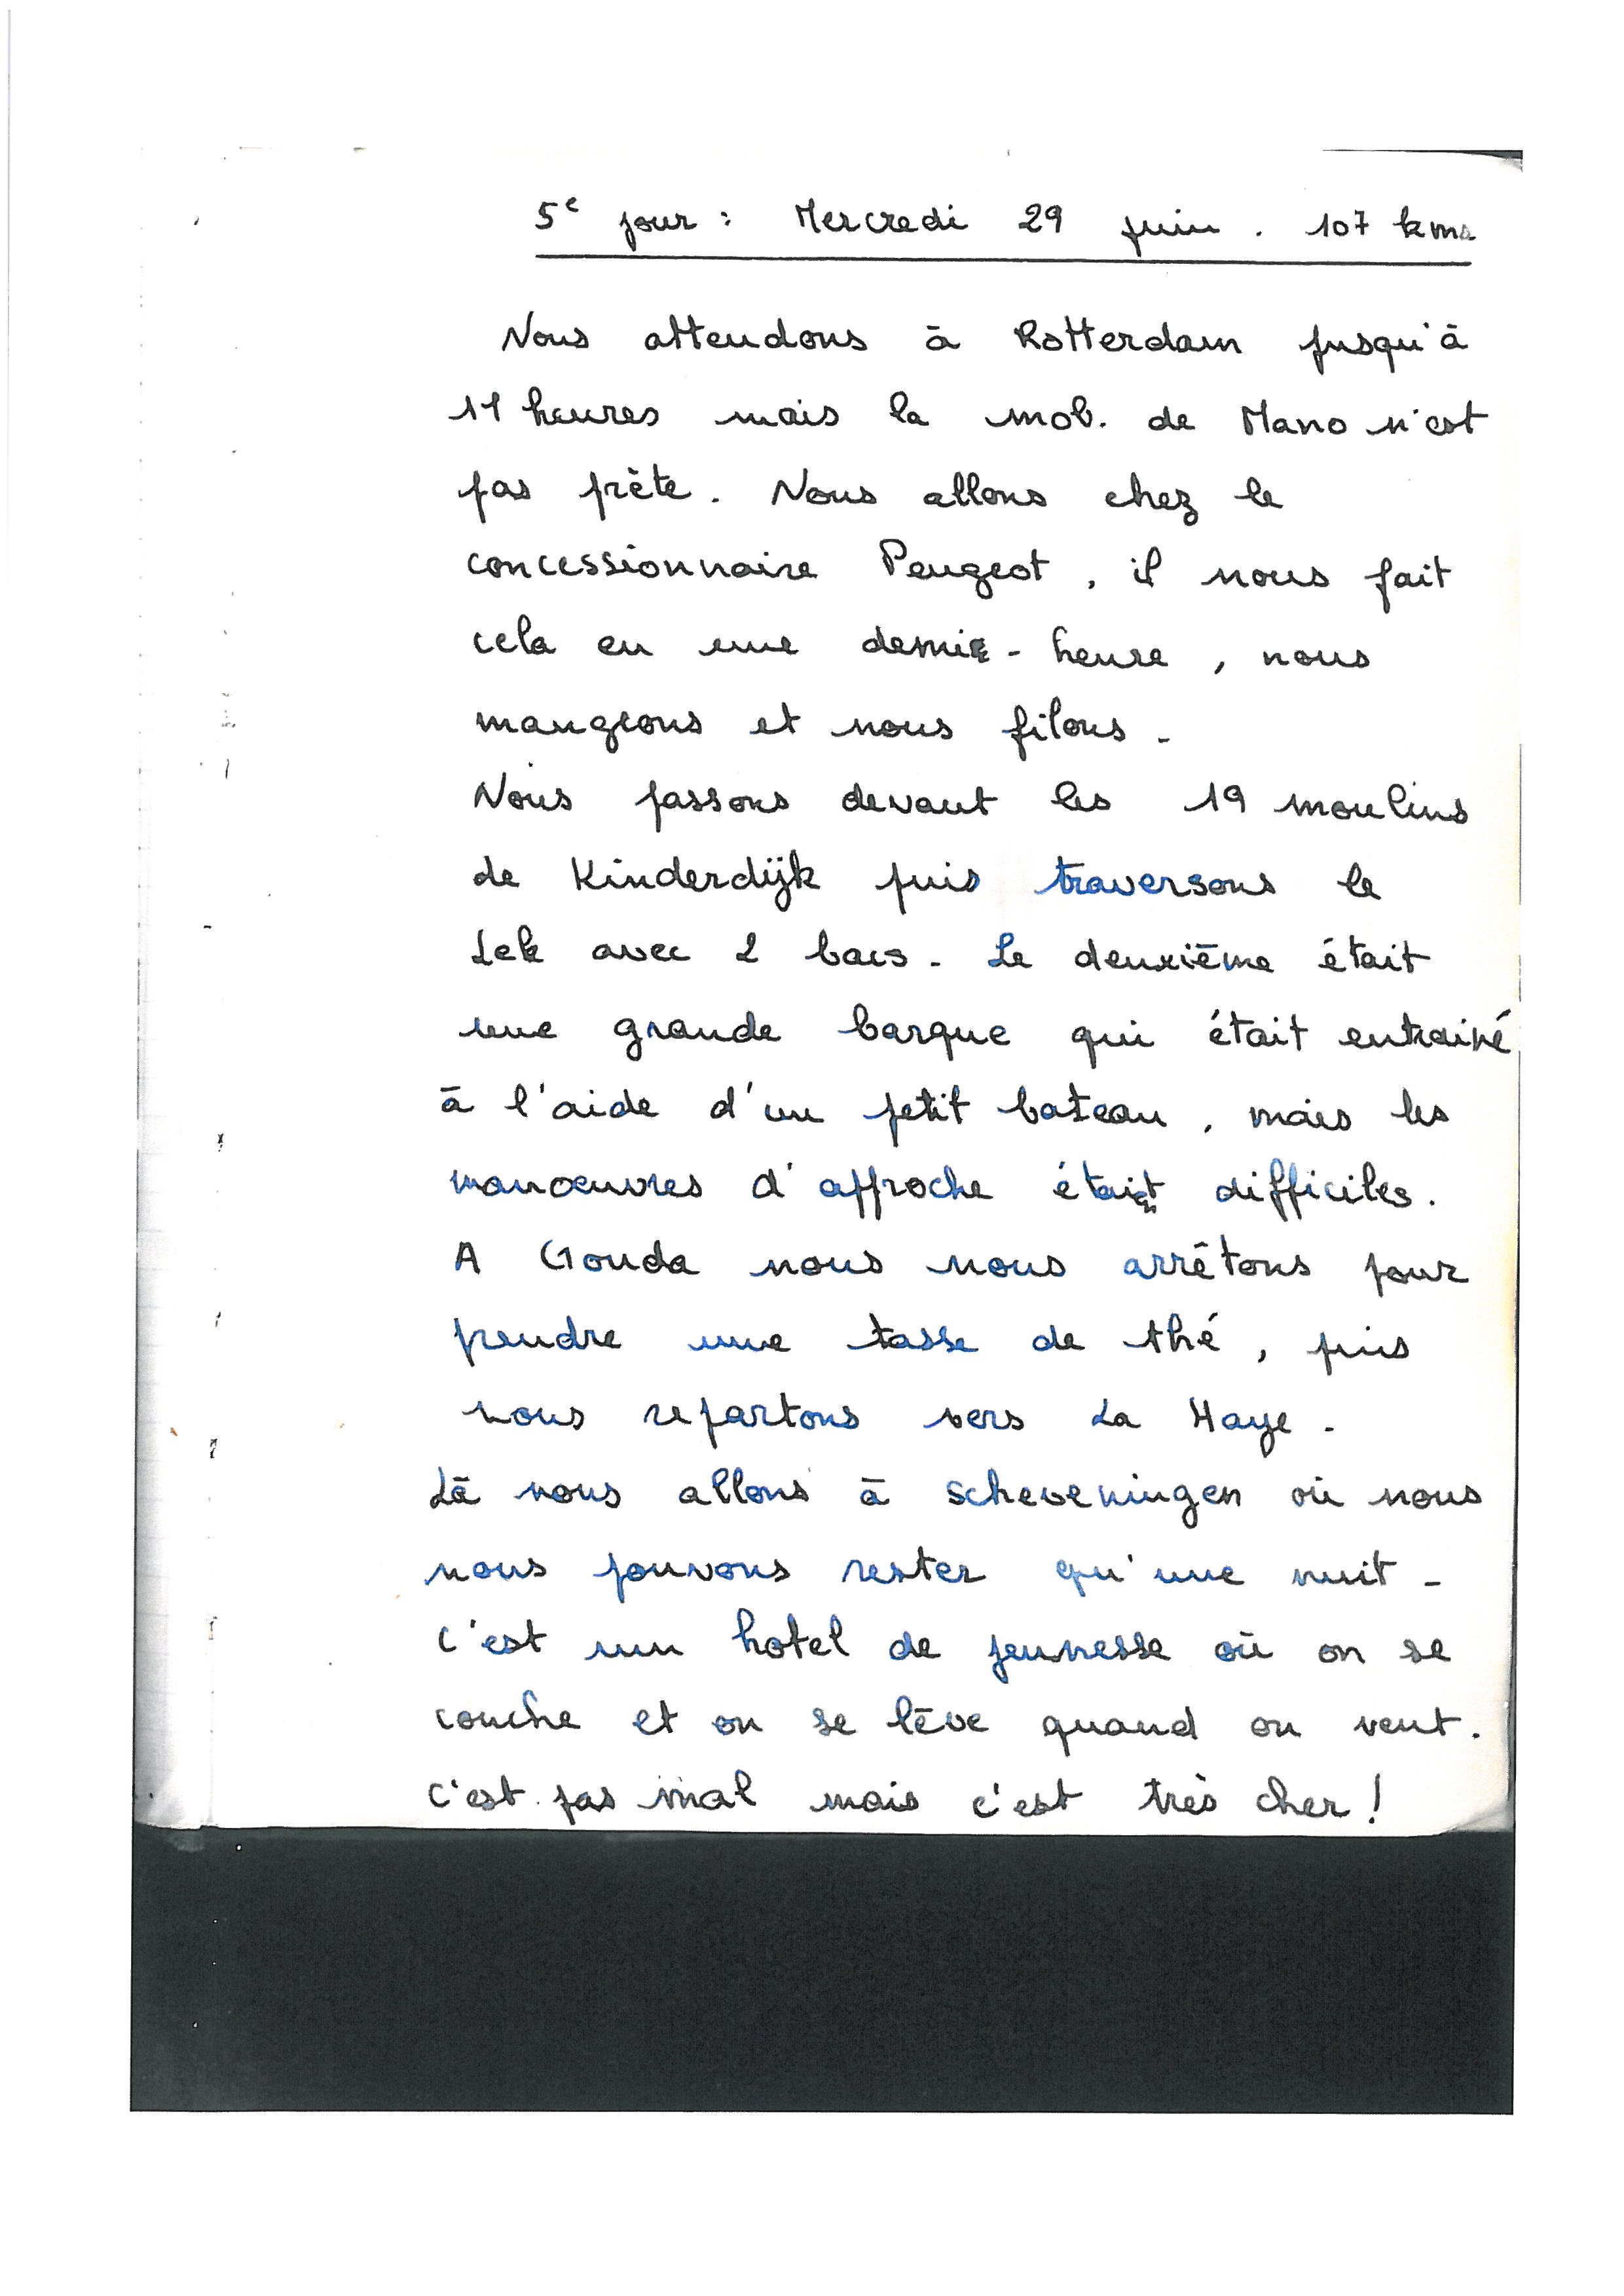 5e jour : Mercredi 29 juin . 107 kms
Nous attendons à Rotterdam jusqu'à
11 heures mais la mob. de Mano n'est
pas prête. Nous allons chez le
concessionnaire Peugeot, il nous fait
cela en une demie-heure, nous
mangeons et nous filons.
Nous passons devant les 19 moulins
de Kinderdijk puis traversons le
Lek avec 2 bacs. Le deuxième était
une grande barque qui était entrainé
à l'aide d'un petit bateau, mais les
manœuvres d'approche étaient difficiles.
A Gouda nous nous arrêtons pour
prendre une tasse de thé, puis
nous repartons vers La Haye.
Là nous allons à Scheveningen où nous
nous pouvons rester qu'une nuit.
C'est un hotel de jeunesse où on se
couche et on se lève quand on veut.
C'est pas mal mais c'est très cher !